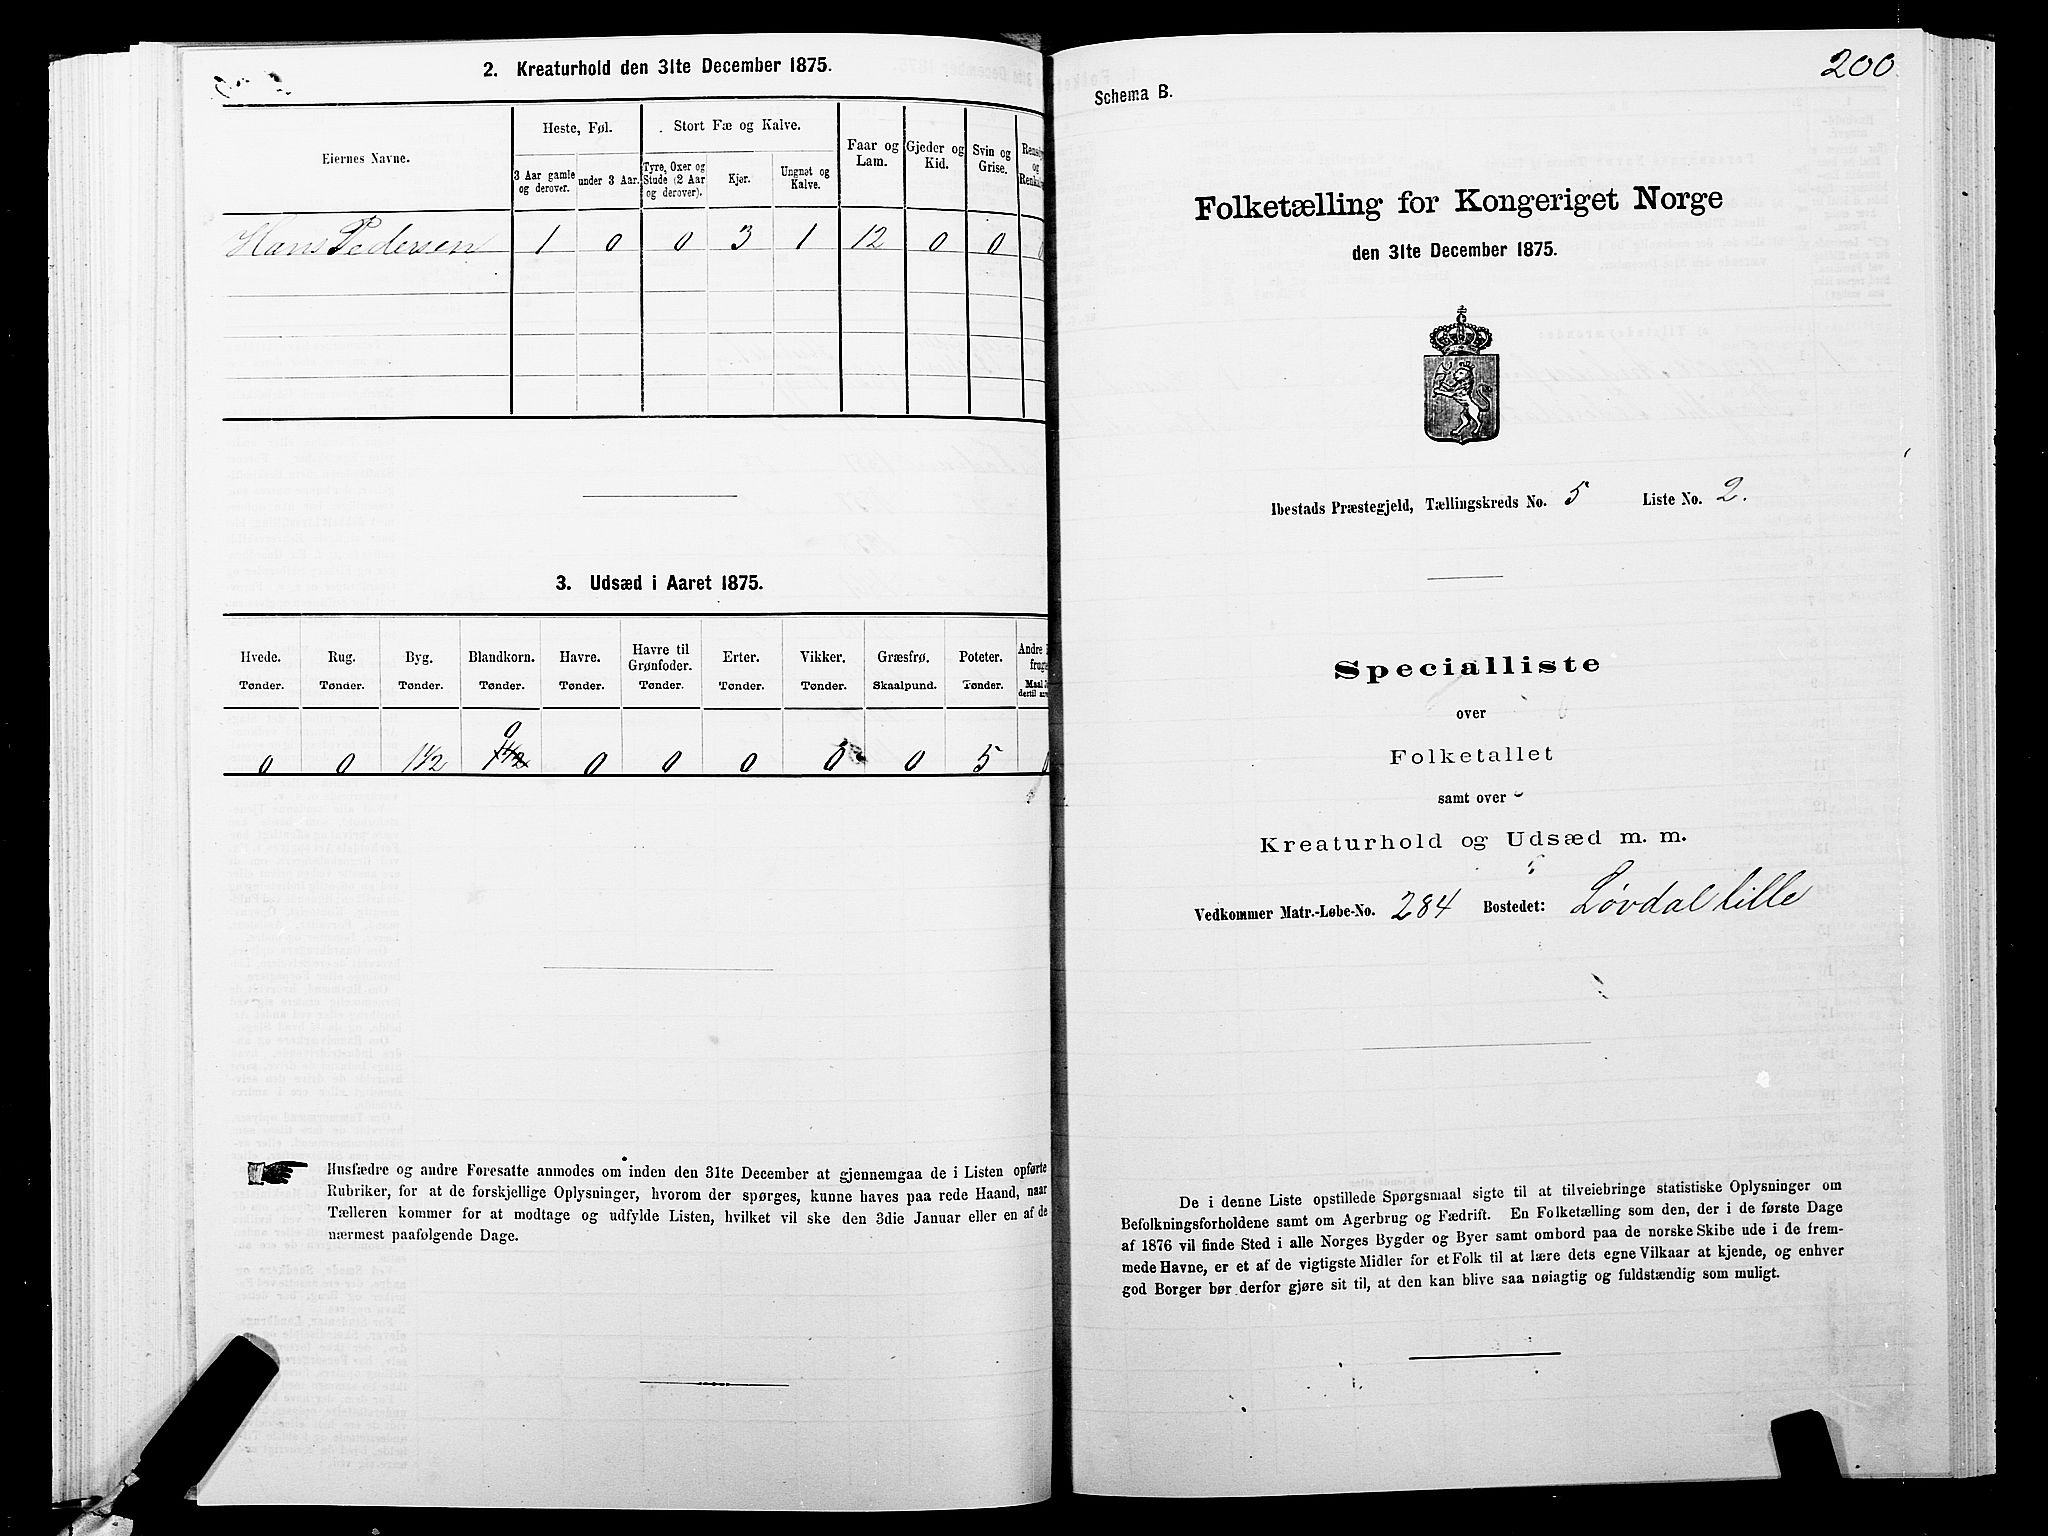 2. Kreaturhold den 31te December 1875.
Eiernes Navne.
Heste, Føl.
Stort Fæ og Kalve.
Faar og Lam.
Gjeder og Kid.
Svin og Grise.
3 Aar gamle og derover.
under 3 Aar.
Tyre, Oxer og Stude (2 Aar og derover).
Kjør.
Ungnøt og Kalve.
Hans Pedersen 1 0 0 3 1 12 0 0 0
3. Udsæd i Aaret 1875.
Hvede. Rug. Byg. Blandkorn. Havre. Havre til Grønfoder. Erter. Vikker. Græsfrø. Poteter. Andre
Tønder. Tønder. Tønder. Tønder. Tønder. Tønder. Tønder. Tønder. Skaalpund. Tønder.
0 0 1 1/2 0 0 0 0 0 0 5 0
Husfædre og andre Foresatte anmodes om inden den 31te December at gjennemgaa de i Listen opførte
Rubriker, for at de forskjellige Oplysninger, hvorom der spørges, kunne haves paa rede Haand, naar
Tælleren kommer for at modtage og udfylde Listen, hvilket vil ske den 3die Januar eller en af de
nærmest paafølgende Dage.
200
Schema B.
Folketælling for Kongeriget Norge
den 31te December 1875.
Ibestads Præstegjeld, Tællingskreds No. 5 Liste No. 2.
Specialliste
over
Folketallet
samt over
Kreaturhold og Udsæd m. m.
Vedkommer Matr.-Løbe-No. 284 Bostedet: Løvdal lille
De i denne Liste opstillede Spørgsmaal sigte til at tilveiebringe statistiske Oplysninger om
Befolkningsforholdene samt om Agerbrug og Fædrift. En Folketælling som den, der i de første Dage
af 1876 vil finde Sted i alle Norges Bygder og Byer samt ombord paa de norske Skibe ude i de frem-
mede Havne, er et af de vigtigste Midler for et Folk til at lære dets egne Vilkaar at kjende, og enhver
god Borger bør derfor gjøre sit til, at den kan blive saa nøiagtig og fuldstændig som muligt.